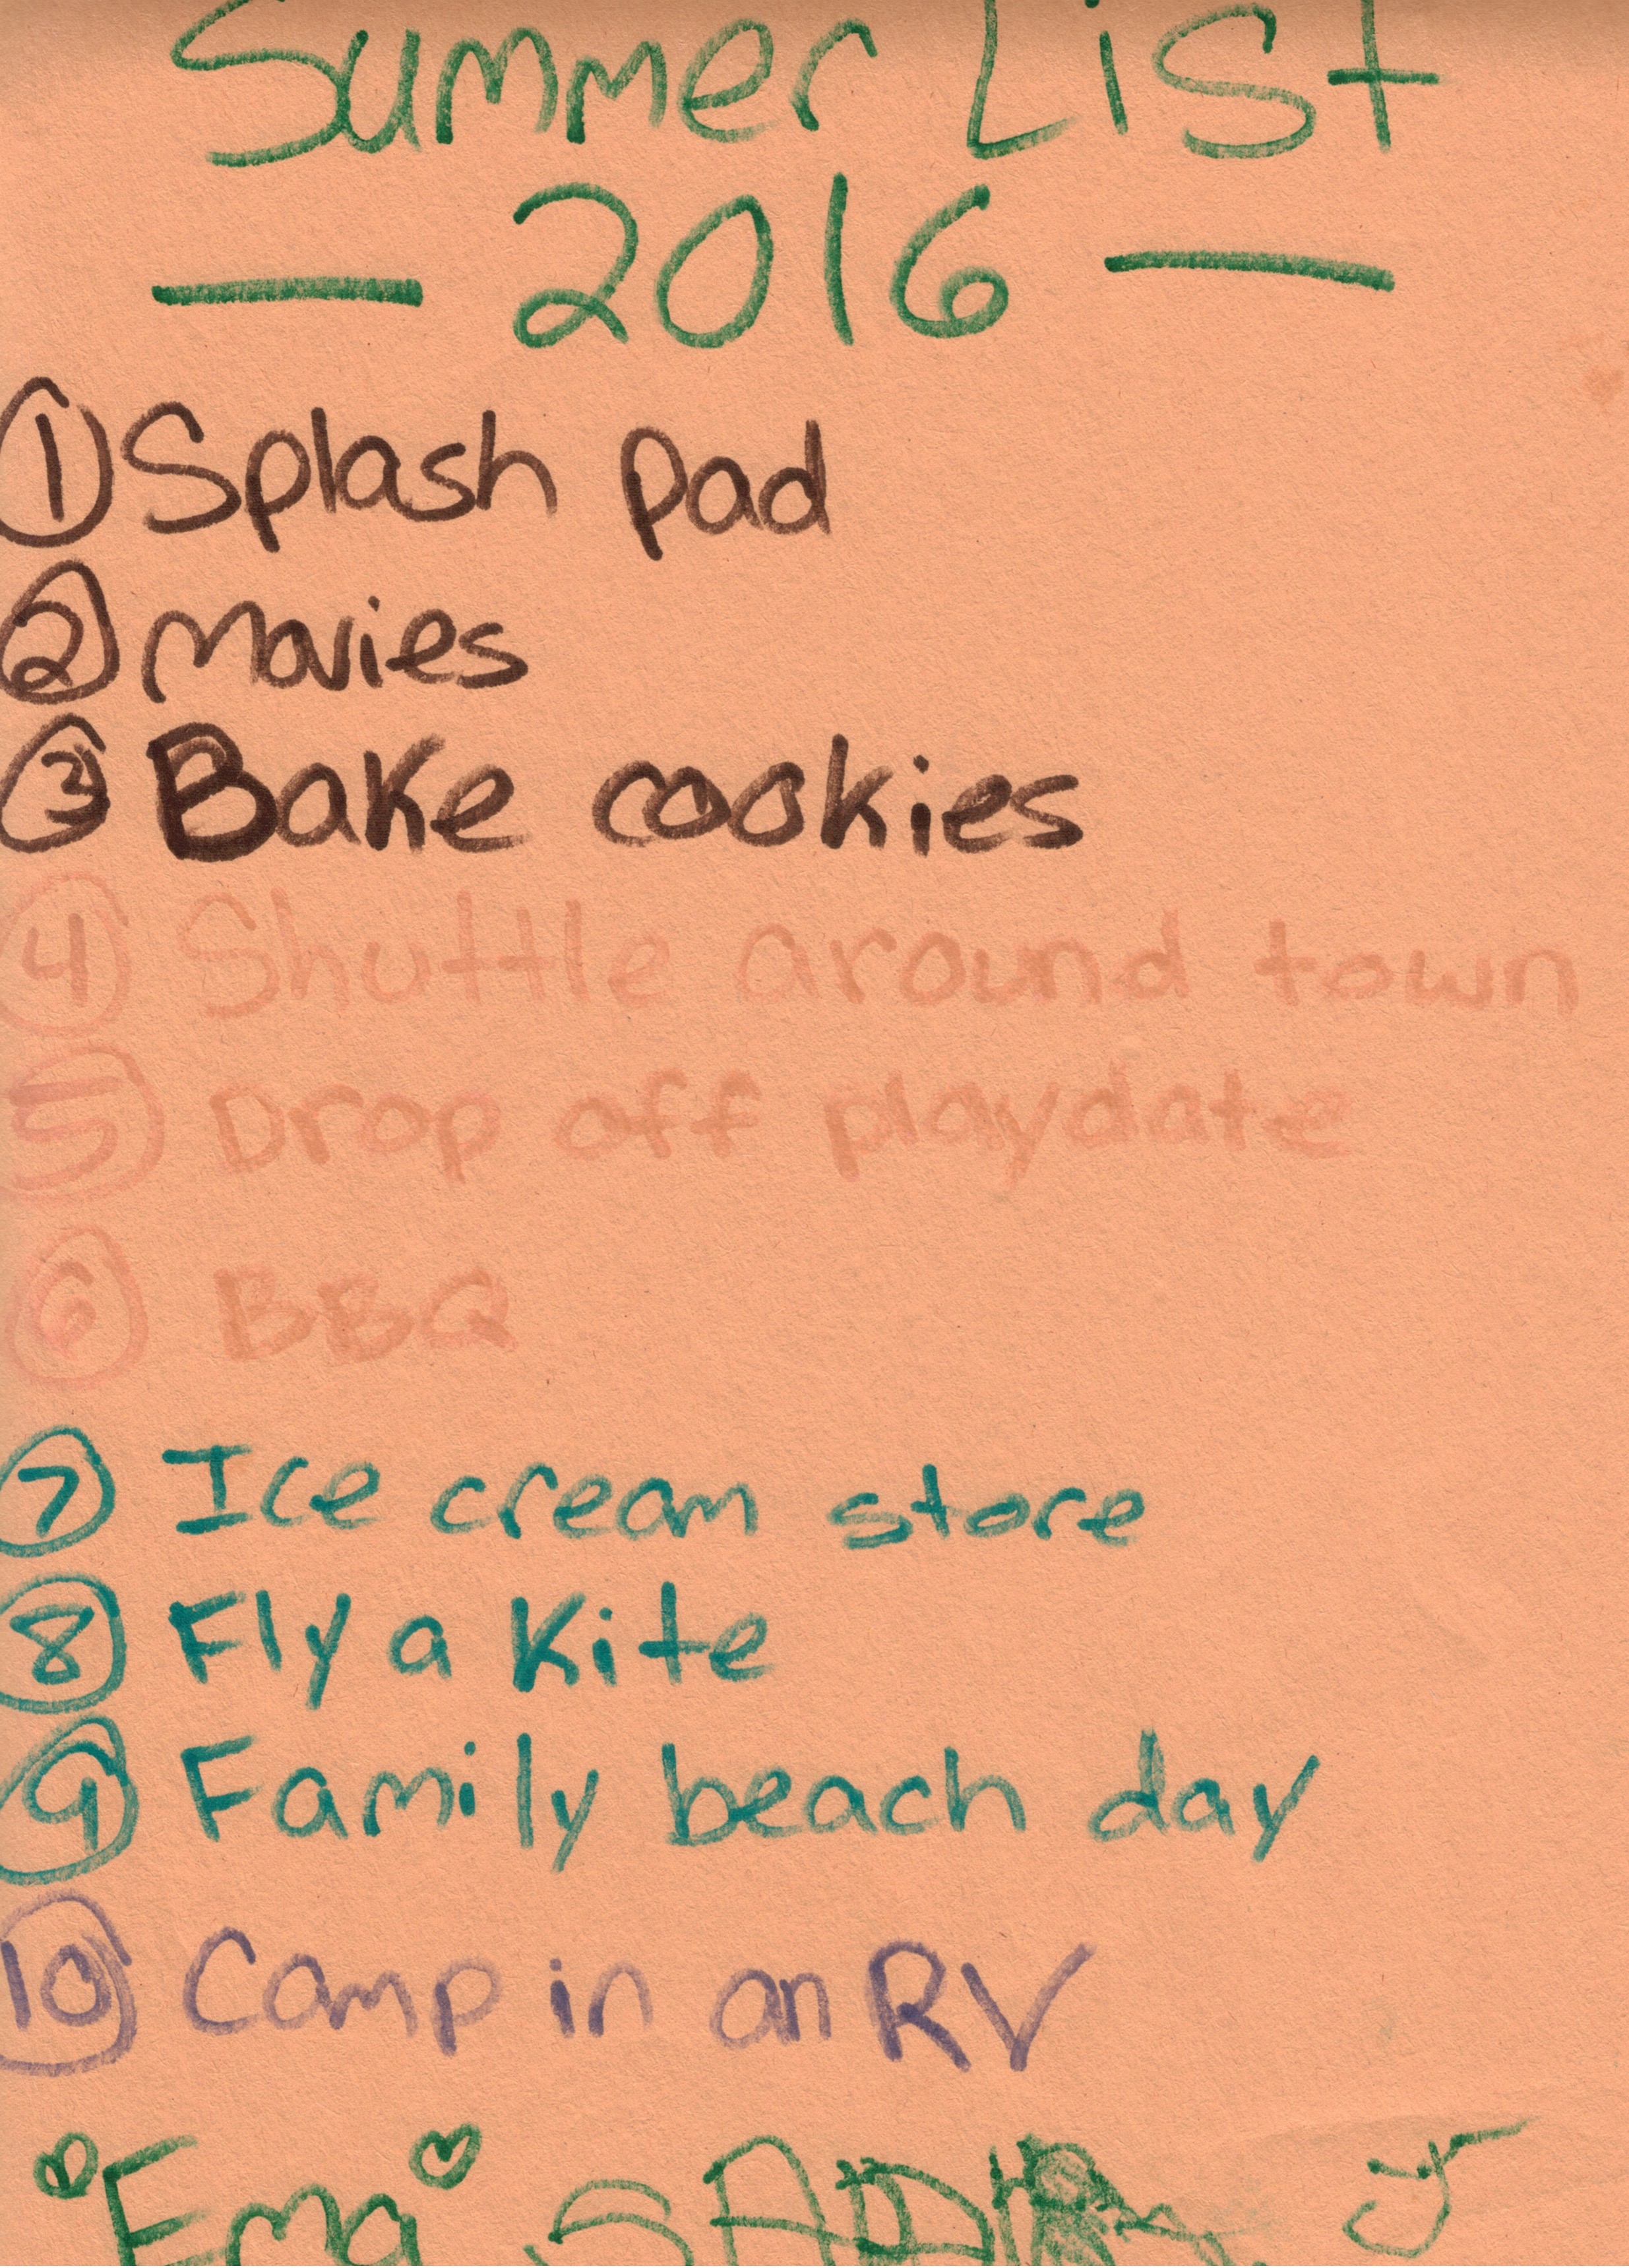 Summer List
— 2016 —
① Splash pad
② Movies
③ Bake cookies
④ Shuttle around town
⑤ Drop off playdate
⑥ BBQ
⑦ Ice cream store
⑧ Fly a Kite
⑨ Family beach day
⑩ Camp in an RV
Ema